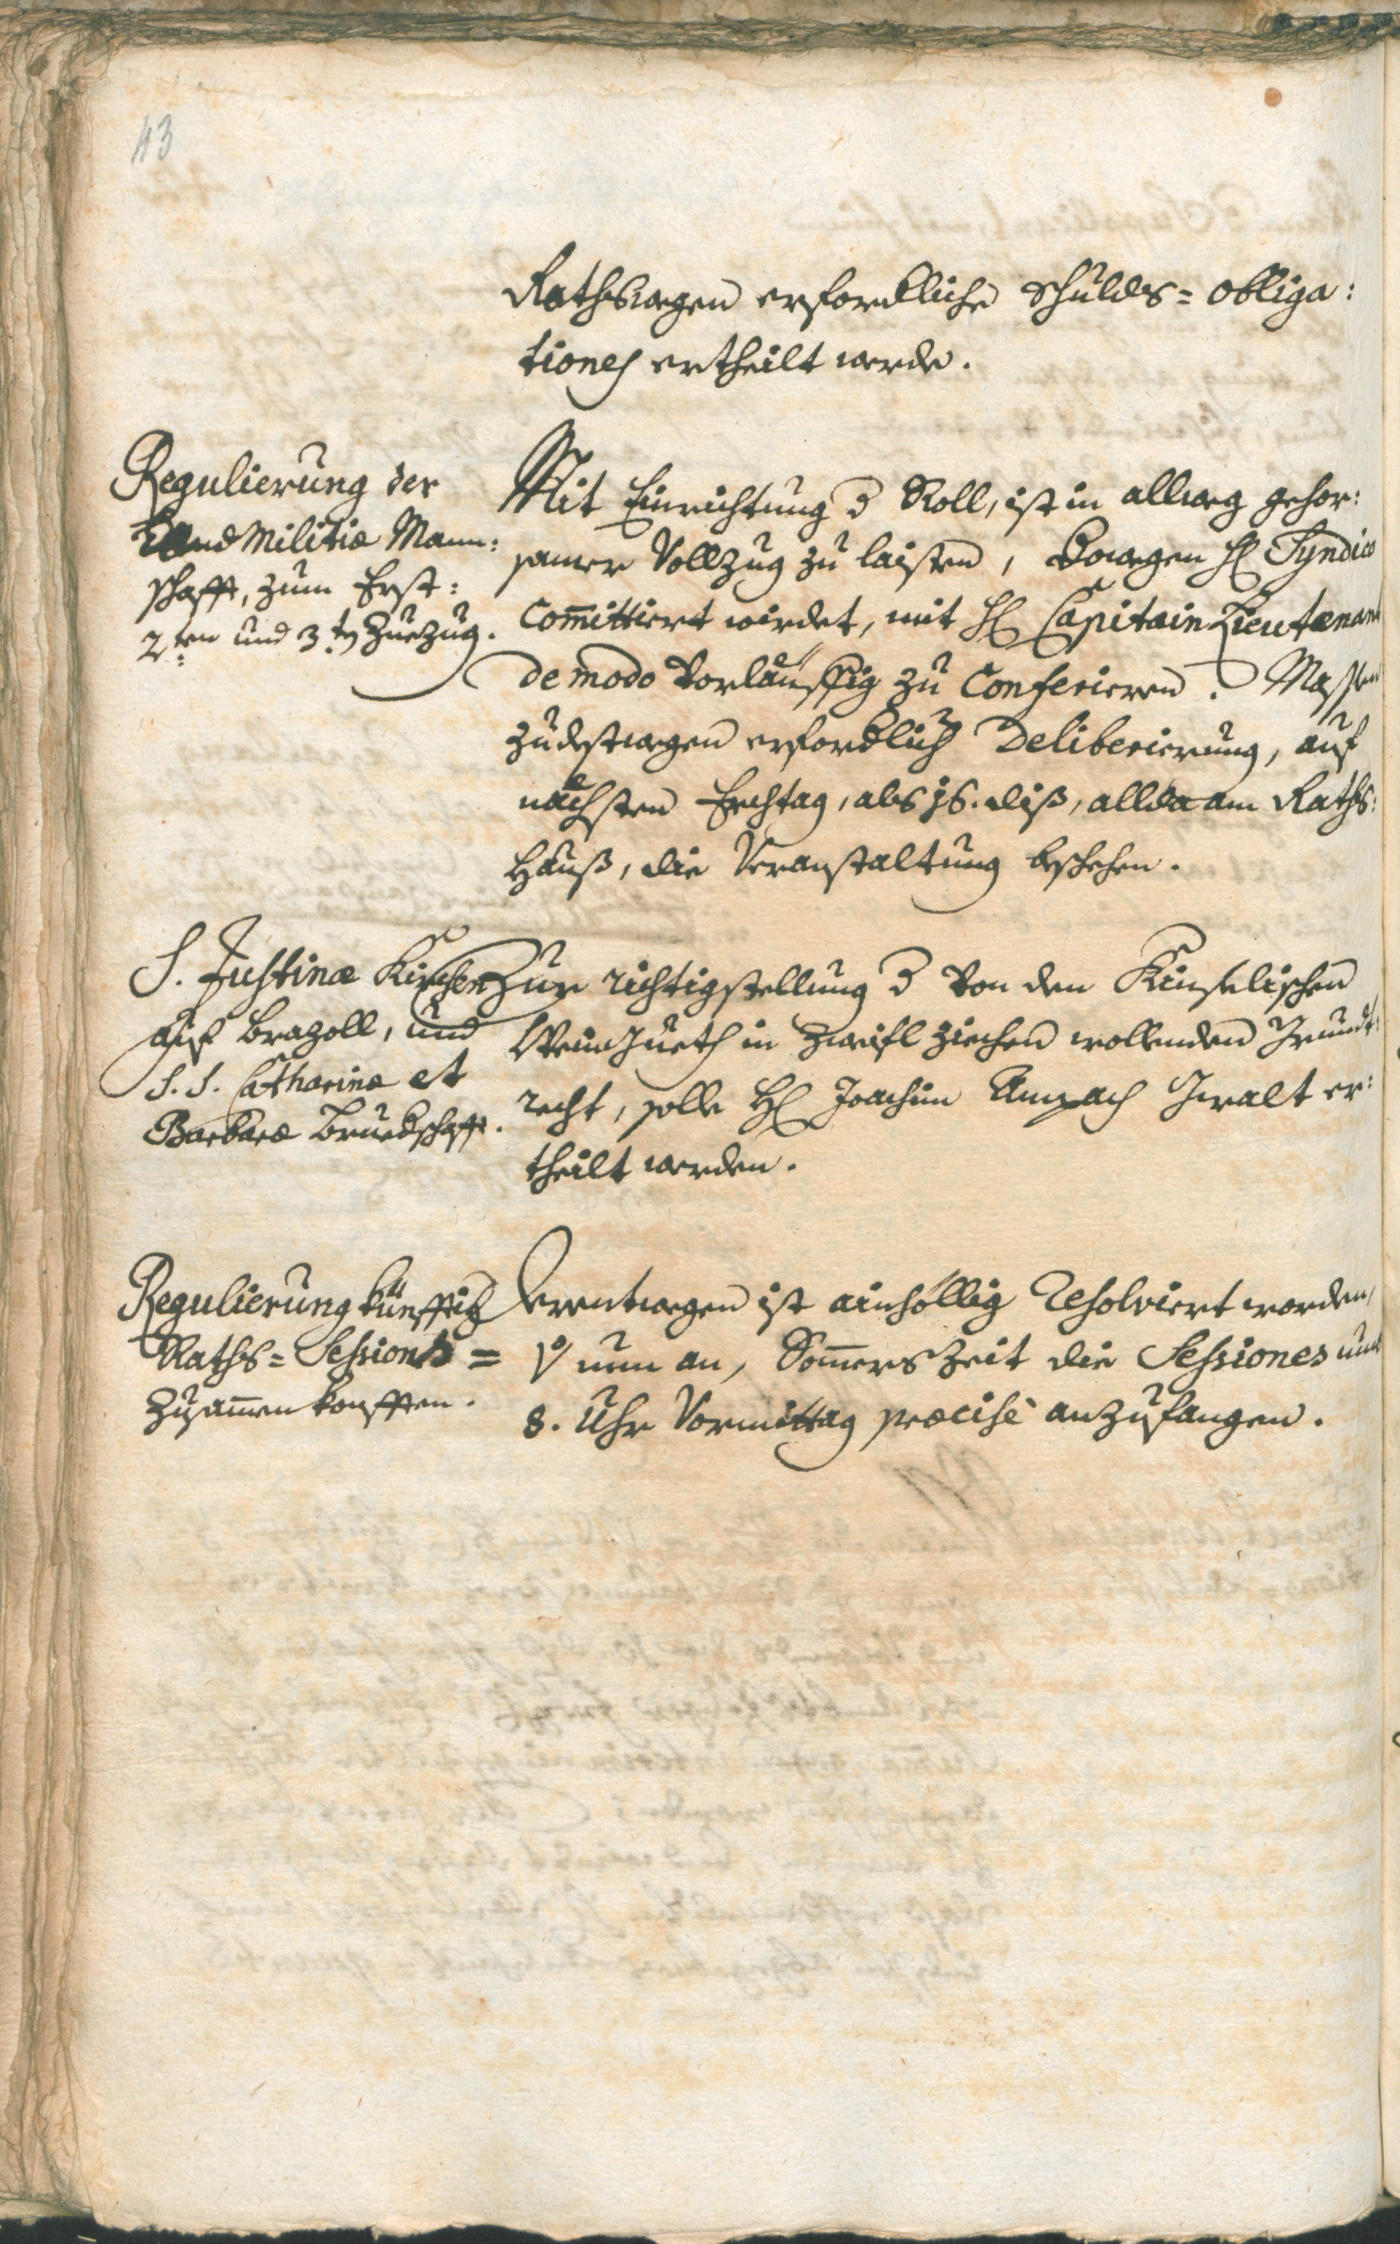 43
Rathswegen erfordliche Schulds= obliga:
tiones ertheilt werde.
Regulierung der
Land Militiæ Mann:
schafft, zum Erst:
2ten und 3ten Zuezug.
Mit Einrichtung d Roll, ist in allweg gehor:
samer Vollzug zu laisten, dowegen H Syndico
Com̅ittiert wirdet, mit H Capitain Lieutenant
de modo vorläuffig zu Conferieren. Massen
zudestwegen erfordlich Deliberierung, auf
nächsten Erchtag, als 16. diß, allda am Raths:
Hauß, die Veranstaltung beschehen.
S. Justinæ Kirchen
auf Prazoll, und
S. S. Catharinæ et
Barbaræ Bruedschafft.
Zur richtigstellung d von den Kinselischen
WeinGueth in Zweifl ziechen wollenden Grundt:
recht, solle H Joachim Amplach Gwalt er:
theilt werden.
Regulierung künfftig
Raths= Sessions=
Zusam̅enkonfften.
Derentwegen ist ainhöllig resolviert worden,
von nun an, Som̅ers Zeit die Sessiones umb
8. Uhr Vormittag præcisè anzufangen.